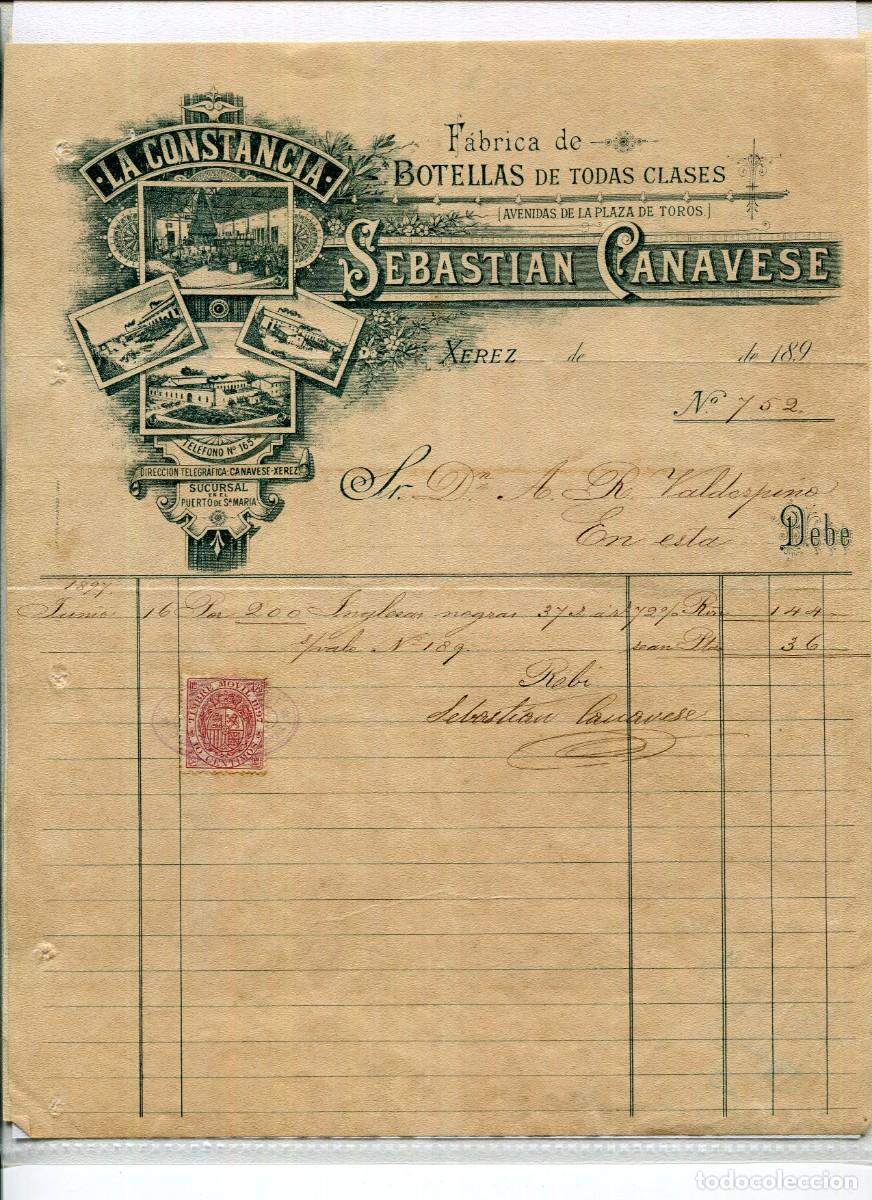 ·LA CONSTANCIA·
Fábrica de
BOTELLAS DE TODAS CLASES
[AVENIDAS DE LA PLAZA DE TOROS]
SEBASTIAN CANAVESE
XEREZ de de 189
Nº 752
TELEFONO Nº 165
DIRECCION TELEGRÁFICA: CANAVESE-XEREZ
SUCURSAL
EN EL
PUERTO DE Sª MARIA
Sr. Dn. A. R. Valdespino
En esta Debe
1897
Junio 16 Por 200 Inglesas negras 37 72 Rvn 144
s/vale Nº 189. sean Ptas 36
Rebí
Sebastián Canavese
TIMBRE MOVIL 1897
10 CENTIMOS
todocoleccion